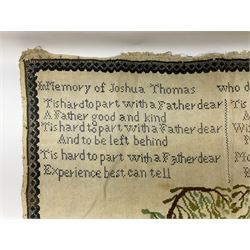 In Memory of Joshua Thomas who d
Tis hard to part with a Father dear
A Father good and kind
Tis hard to part with a Father dear
And to be left behind
Tis hard to part with a Father dear
Experience best can tell